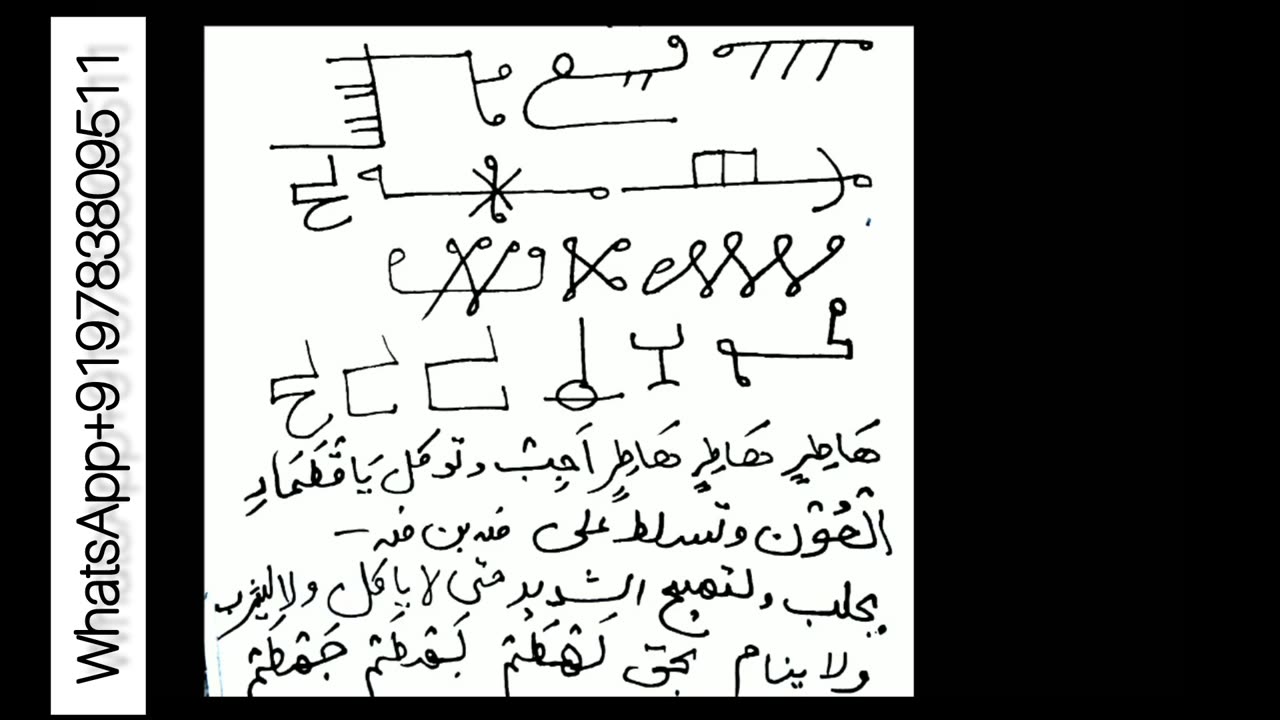 WhatsApp+919783809511
هَاطِرٍ هَاطِرٍ هَاطِرٍ اَجِبْ وتوكل يَا قَطَمَارِ
الْعَوْن وتسلط على فـه بن فـه —
بجلب ولتهيج الشديد حتى لا ياكل ولا
ولا ينام بحق لَهْطَتْم